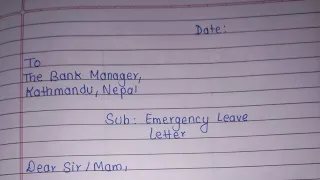 Date:
To
The Bank Manager,
Kathmandu, Nepal
Sub: Emergency Leave
Letter
Dear Sir/Mam,